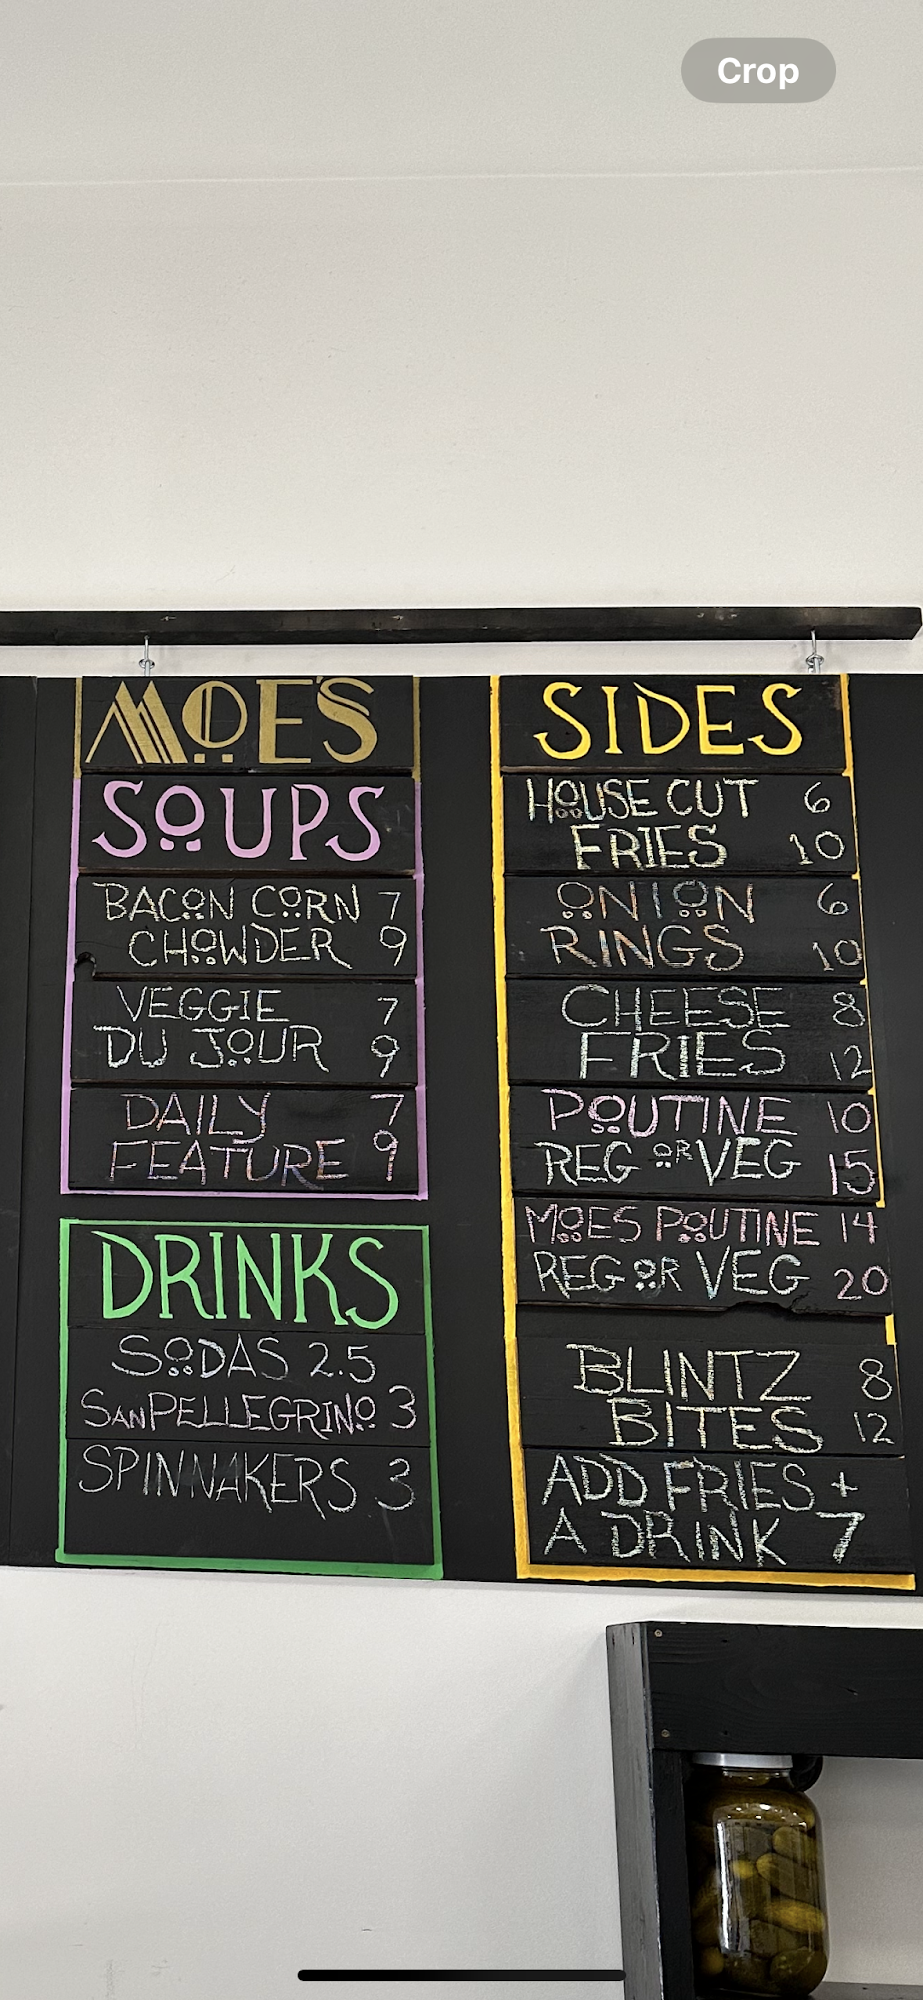 Crop
MOE'S
SOUPS
BACON CORN 7
CHOWDER 9
VEGGIE 7
DU JOUR 9
DAILY 7
FEATURE 9
DRINKS
SODAS 2.5
SANPELLEGRINO 3
SPINNAKERS 3
SIDES
HOUSE CUT 6
FRIES 10
ONION 6
RINGS 10
CHEESE 8
FRIES 12
POUTINE 10
REG OR VEG 15
MOES POUTINE 14
REG OR VEG 20
BLINTZ 8
BITES 12
ADD FRIES +
A DRINK 7